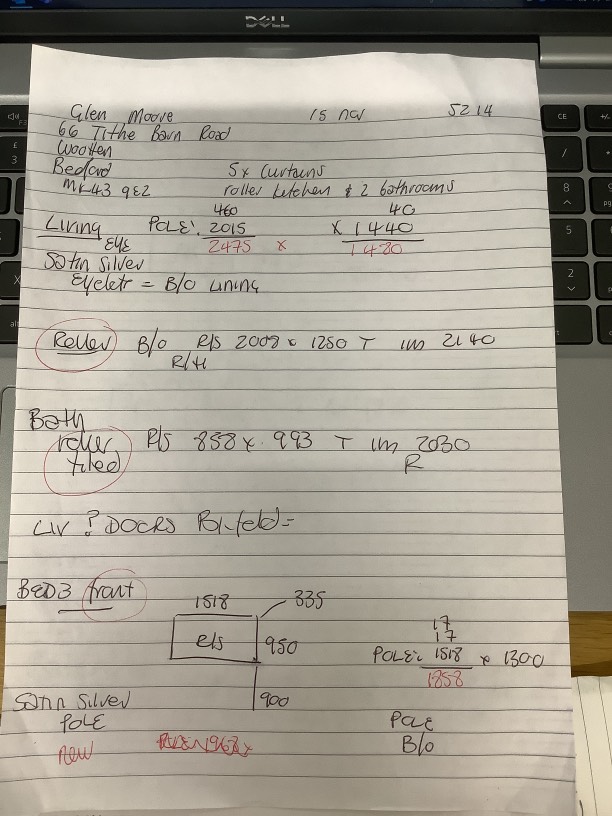 DELL
Glen Moore 15 nov 5214
66 Tithe Barn Road
Wootten
Bedford 5x Curtains
MK43 9EZ roller kitchen & 2 bathrooms
460 40
Living POLE: 2015 x 1440
EYE 2475 x 1420
Satin Silver
Eyelets = B/O Lining
Roller B/o R/s 2008 x 1250 T 1m 2140
R/H
Bath
roller R/s 858 x 993 T 1m 2030
tiled R
Liv ? DOORS Bi-feld=
BED3 front
1518 335
e/s 950
17
17
POLE: 1518 x 1300
1858
900
Satin Silver
POLE POLE
new B/o